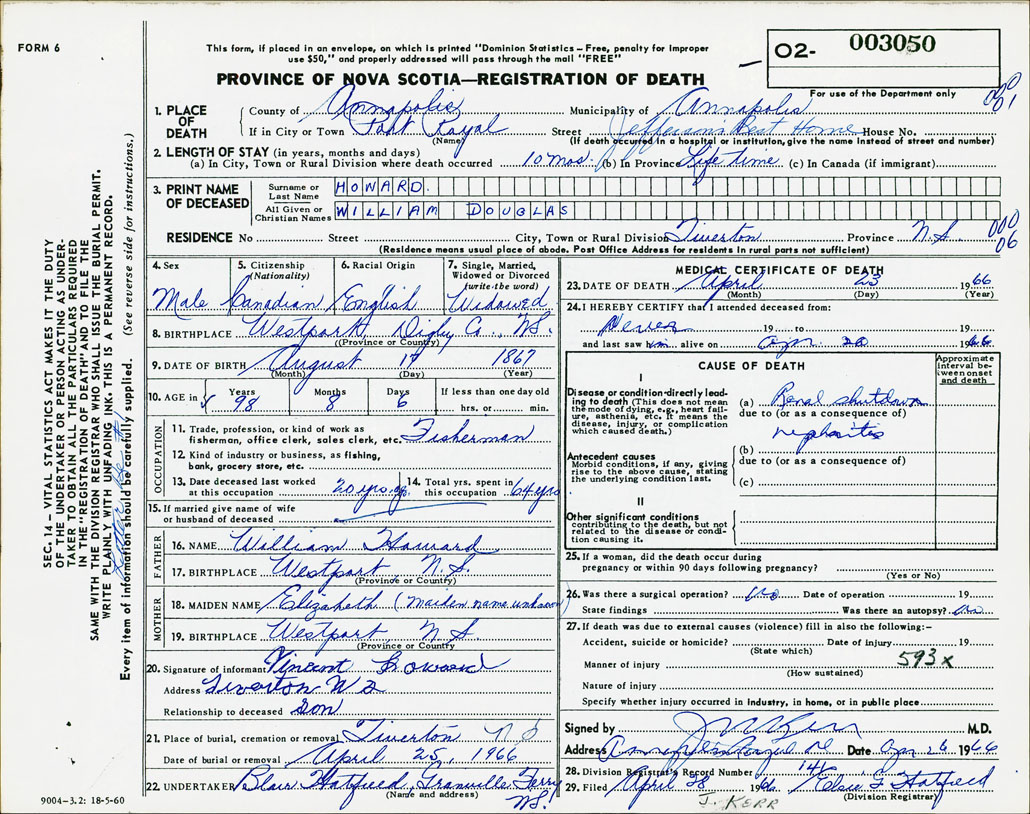 FORM 6
This form, if placed in an envelope, on which is printed "Dominion Statistics – Free, penalty for improper
use $50," and properly addressed will pass through the mail "FREE"
PROVINCE OF NOVA SCOTIA—REGISTRATION OF DEATH
02- 003050
For use of the Department only
SEC. 14 – VITAL STATISTICS ACT MAKES IT THE DUTY
OF THE UNDERTAKER OR PERSON ACTING AS UNDER-
TAKER TO OBTAIN ALL THE PARTICULARS REQUIRED
IN THE "REGISTRATION OF DEATH" AND TO FILE THE
SAME WITH THE DIVISION REGISTRAR WHO SHALL ISSUE THE BURIAL PERMIT.
WRITE PLAINLY WITH UNFADING INK. THIS IS A PERMANENT RECORD.
Every item of information should be carefully supplied. (See reverse side for instructions.)
1. PLACE OF DEATH County of Annapolis Municipality of Annapolis
If in City or Town Port Royal Street Jefferson's Rest Home House No.
(Name) (If death occurred in a hospital or institution, give the name instead of street and number)
2. LENGTH OF STAY (in years, months and days)
(a) In City, Town or Rural Division where death occurred 10 mos. (b) In Province Life time (c) In Canada (if immigrant)
3. PRINT NAME OF DECEASED Surname or Last Name HOWARD.
All Given or Christian Names WILLIAM DOUGLAS
RESIDENCE No Street City, Town or Rural Division Tiverton Province N.S.
(Residence means usual place of abode. Post Office Address for residents in rural parts not sufficient)
000 01
000 06
4. Sex 5. Citizenship (Nationality) 6. Racial Origin 7. Single, Married, Widowed or Divorced (write the word)
Male Canadian English Widowed
8. BIRTHPLACE Westport, Digby Co., N.S.
(Province or Country)
9. DATE OF BIRTH August 17 1867
(Month) (Day) (Year)
10. AGE in Years 98 Months 8 Days 6 If less than one day old
hrs. or min.
OCCUPATION
11. Trade, profession, or kind of work as
fisherman, office clerk, sales clerk, etc. Fisherman
12. Kind of industry or business, as fishing,
bank, grocery store, etc.
13. Date deceased last worked at this occupation 20 yrs. ago 14. Total yrs. spent in this occupation 64 yrs
15. If married give name of wife
or husband of deceased
FATHER
16. NAME William Howard
17. BIRTHPLACE Westport N.S.
(Province or Country)
MOTHER
18. MAIDEN NAME Elizabeth (Maiden name unknown)
19. BIRTHPLACE Westport N.S.
(Province or Country)
20. Signature of informant Vincent Howard
Address Tiverton N S
Relationship to deceased Son
21. Place of burial, cremation or removal Tiverton N S
Date of burial or removal April 25, 1966
22. UNDERTAKER Blair Hatfield, Granville Ferry
(Name and address) N.S.
9004-3.2: 18-5-60
MEDICAL CERTIFICATE OF DEATH
23. DATE OF DEATH April 23 1966
(Month) (Day) (Year)
24. I HEREBY CERTIFY that I attended deceased from:
Never 19 to 19
and last saw him alive on Apr. 20 1966
CAUSE OF DEATH
Approximate interval between onset and death
I
Disease or condition directly lead-
ing to death (This does not mean
the mode of dying, e.g., heart fail-
ure, asthenia, etc. It means the
disease, injury, or complication
which caused death.)
(a) Renal shutdown
due to (or as a consequence of)
nephritis
Antecedent causes
Morbid conditions, if any, giving
rise to the above cause, stating
the underlying condition last.
(b)
due to (or as a consequence of)
(c)
II
Other significant conditions
contributing to the death, but not
related to the disease or condi-
tion causing it.
25. If a woman, did the death occur during
pregnancy or within 90 days following pregnancy?
(Yes or No)
26. Was there a surgical operation? No Date of operation 19
State findings Was there an autopsy? No
27. If death was due to external causes (violence) fill in also the following:-
Accident, suicide or homicide? Date of injury 19
(State which)
Manner of injury 593x
(How sustained)
Nature of injury
Specify whether injury occurred in industry, in home, or in public place
Signed by J Kerr M.D.
Address Annapolis Royal NS Date Apr 26 1966
28. Division Registrar's Record Number 146
29. Filed April 28 1966 Elsie F Hatfield
(Division Registrar)
J. KERR